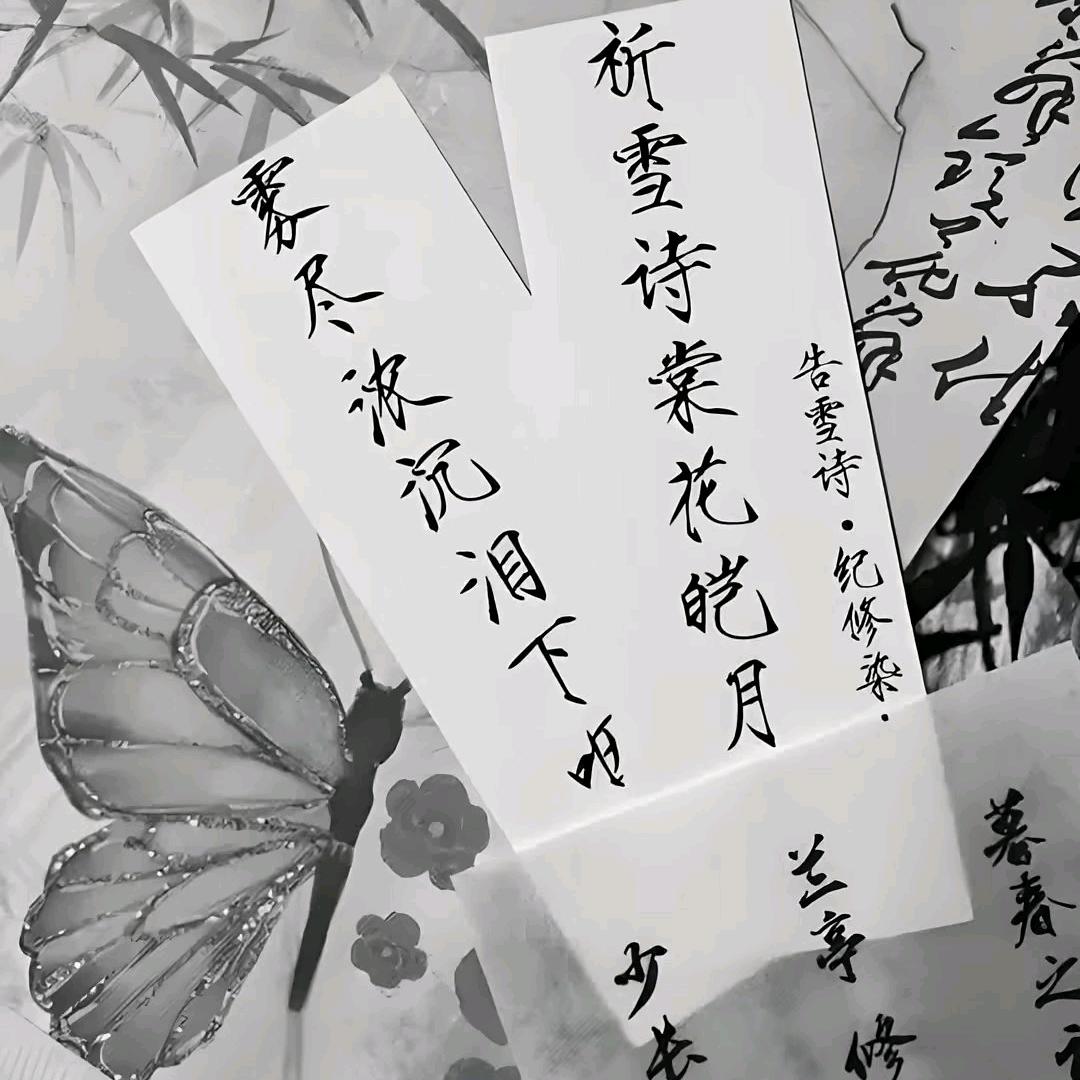 祈雪诗棠花皑月
告雪诗·纪修染·
雾尽浓沉泪下咀
暮春之
兰亭修
少长